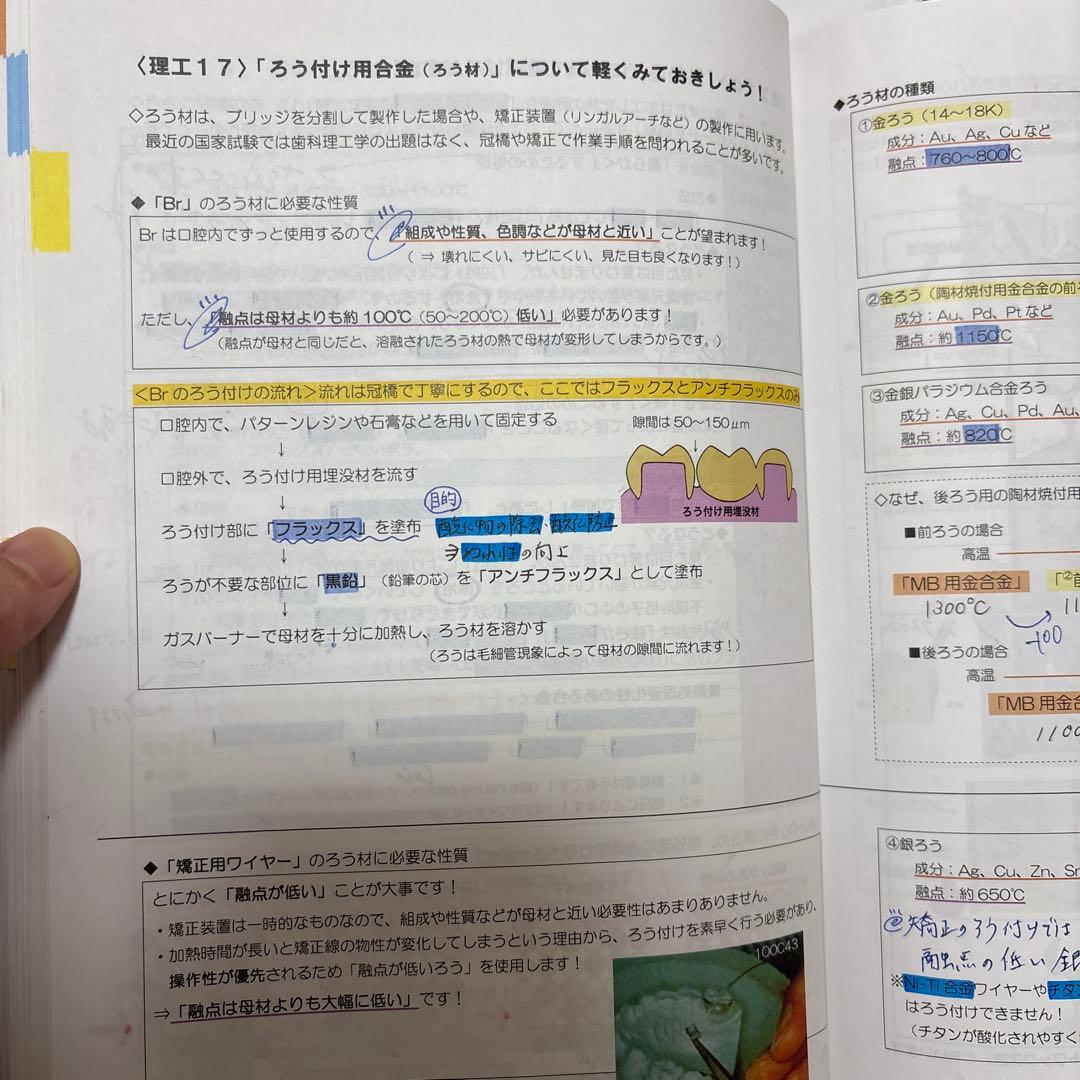 〈理工１７〉「ろう付け用合金（ろう材）」について軽くみておきしょう！
◇ろう材は、ブリッジを分割して製作した場合や、矯正装置（リンガルアーチなど）の製作に用います。
最近の国家試験では歯科理工学の出題はなく、冠橋や矯正で作業手順を問われることが多いです。
◆「Br」のろう材に必要な性質
Brは口腔内でずっと使用するので「組成や性質、色調などが母材と近い」ことが望まれます！
（⇒ 壊れにくい、サビにくい、見た目も良くなります！）
ただし「融点は母材よりも約100℃（50～200℃）低い」必要があります！
（融点が母材と同じだと、溶融されたろう材の熱で母材が変形してしまうからです。）
＜Brのろう付けの流れ＞流れは冠橋で丁寧にするので、ここではフラックスとアンチフラックスのみ
口腔内で、パターンレジンや石膏などを用いて固定する
隙間は50～150μm
↓
口腔外で、ろう付け用埋没材を流す
↓
ろう付け用埋没材
目的
ろう付け部に「フラックス」を塗布 酸化物の除去・酸化防止
⇒ぬれ性の向上
↓
ろうが不要な部位に「黒鉛」（鉛筆の芯）を「アンチフラックス」として塗布
↓
ガスバーナーで母材を十分に加熱し、ろう材を溶かす
（ろうは毛細管現象によって母材の隙間に流れます！）
◆「矯正用ワイヤー」のろう材に必要な性質
とにかく「融点が低い」ことが大事です！
・矯正装置は一時的なものなので、組成や性質などが母材と近い必要性はあまりありません。
・加熱時間が長いと矯正線の物性が変化してしまうという理由から、ろう付けを素早く行う必要があり、
操作性が優先されるため「融点が低いろう」を使用します！
⇒「融点は母材よりも大幅に低い」です！
100C43
◆ろう材の種類
①金ろう（14～18K）
成分：Au、Ag、Cuなど
融点：760～800℃
②金ろう（陶材焼付用金合金の前
成分：Au、Pd、Ptなど
融点：約1150℃
③金銀パラジウム合金ろう
成分：Ag、Cu、Pd、Au、
融点：約820℃
◇なぜ、後ろう用の陶材焼付用
■前ろうの場合
高温
「MB用金合金」 「②
1300℃ 11
-100
■後ろうの場合
高温
「MB用金合
1100
④銀ろう
成分：Ag、Cu、Zn、Sn
融点：約650℃
矯正のろう付けでは
融点の低い 銀
※Ni-Ti合金ワイヤーやチタン
はろう付けできません！
（チタンが酸化されやすく